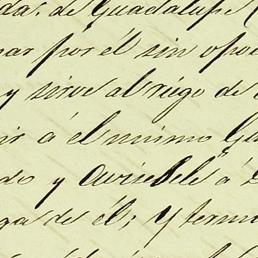 da. de Guadalupe
nar por él sin opo
y sirve al ruego de
ir á él mismo Ga
do y Aviesele á
gas de él; y termi